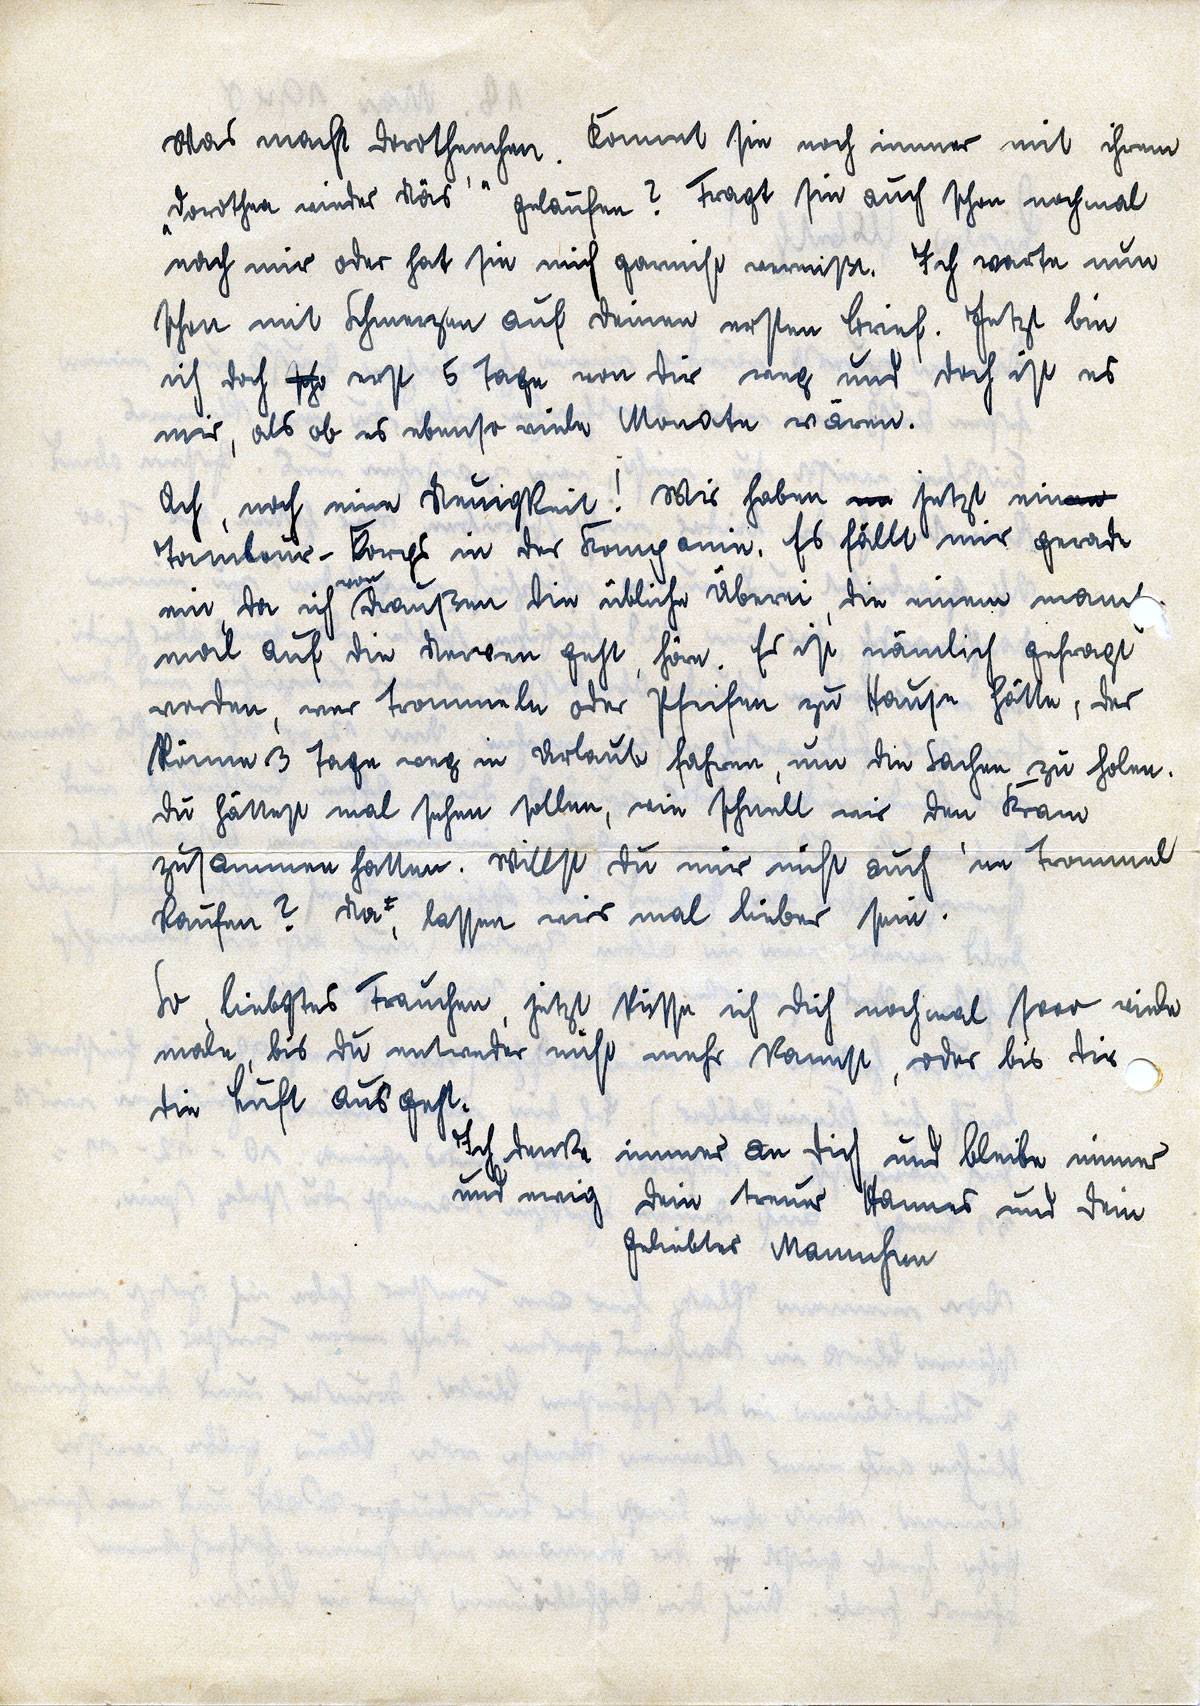 Was macht Dorothenchen. Kommt sie noch immer mit ihrem
"Dorothea wieder Näs'" gelaufen? Fragt sie auch schon nochmal
nach mir oder hat sie mich garnicht vermißt. Ich warte nun
schon mit Schmerzen auf deinen ersten Brief. Jetzt bin
ich doch erst 5 Tage von dir weg und doch ist es
mir, als ob es ebenso viele Monate wären.
Ach, noch eine Neuigkeit! Wir haben jetzt ein
Tambour-Korps in der Kompanie. Es fällt mir gerade
ein, da ich von draußen die übliche Überei, die einem manch
mal auf die Nerven geht, höre. Es ist nämlich gefragt
worden, wer Trommeln oder Pfeifen zu Hause hätte, der
könne 3 Tage weg in Urlaub fahren, um die Sachen zu holen.
Du hättest mal sehen sollen, wie schnell wir den Kram
zusammen hatten. Willst du mir nicht auch 'ne Trommel
kaufen? Na, lassen wirs mal lieber sein.
So, liebstes Frauchen, jetzt küsse ich dich nochmal sooo viele
male, bis du entweder nicht mehr kannst, oder bis dir
die Luft ausgeht.
Ich denke immer an dich und bleibe immer
und ewig dein treuer Hannes und dein
geliebtes Mannchen